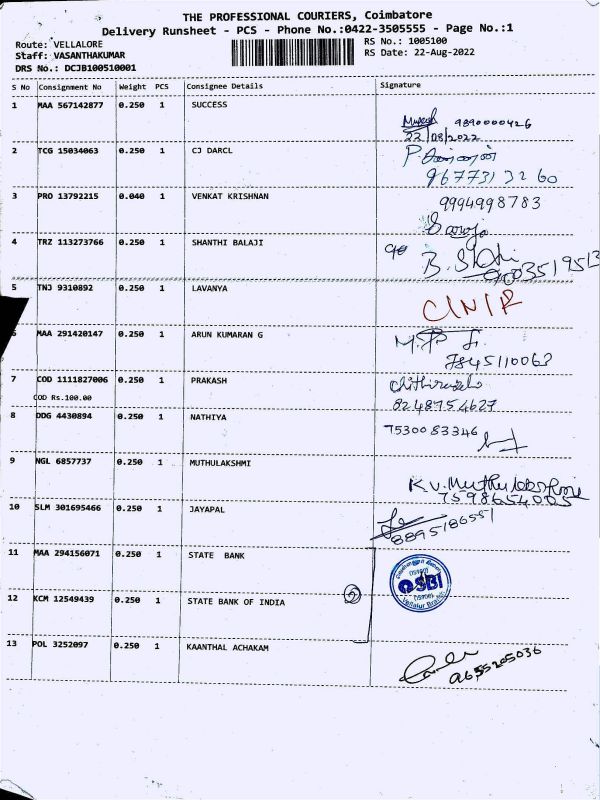 THE PROFESSIONAL COURIERS, Coimbatore
Delivery Runsheet - PCS - Phone No.:0422-3505555 - Page No.:1
Route: VELLALORE
RS No.: 1005100
Staff: VASANTHAKUMAR
RS Date: 22-Aug-2022
DRS No.: DCJB100510001
S No Consignment No Weight PCS Consignee Details Signature
1 MAA 567142877 0.250 1 SUCCESS
9890000426
22/08/2022
2 TCG 15034063 0.250 1 CJ DARCL
9677313260
3 PRO 13792215 0.040 1 VENKAT KRISHNAN 9994998783
4 TRZ 113273766 0.250 1 SHANTHI BALAJI
9003519513
5 TNJ 9310892 0.250 1 LAVANYA
C/N/R
6 MAA 291420147 0.250 1 ARUN KUMARAN G
7845110063
7 COD 1111827006 0.250 1 PRAKASH
COD Rs.100.00
8248754627
8 DDG 4430894 0.250 1 NATHIYA
7530083346
9 NGL 6857737 0.250 1 MUTHULAKSHMI
7598654005
10 SLM 301695466 0.250 1 JAYAPAL
8895186551
11 MAA 294156071 0.250 1 STATE BANK
SBI
Vellalur Branch
12 KCM 12549439 0.250 1 STATE BANK OF INDIA 2
13 POL 3252097 0.250 1 KAANTHAL ACHAKAM
9655205036